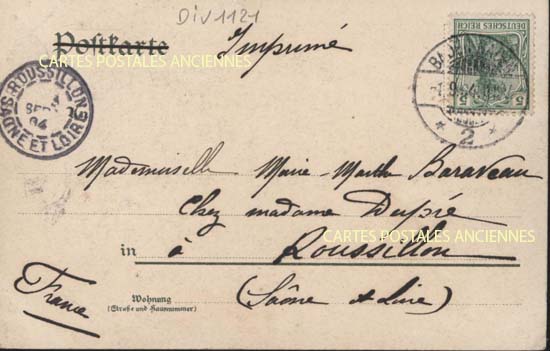 DIV1121
Postkarte
Imprimé
CARTES POSTALES ANCIENNES
DEUTSCHES REICH
5 5
1.9.04
* 2 *
ROUSSILLON
SEPT
04
SAONE ET LOIRE
Mademoiselle Marie-Marthe Baraveau
Chez madame Dupré
CARTES POSTALES ANCIENNES
in à Roussillon
(Saône et Loire)
France
Wohnung
(Straße und Hausnummer)